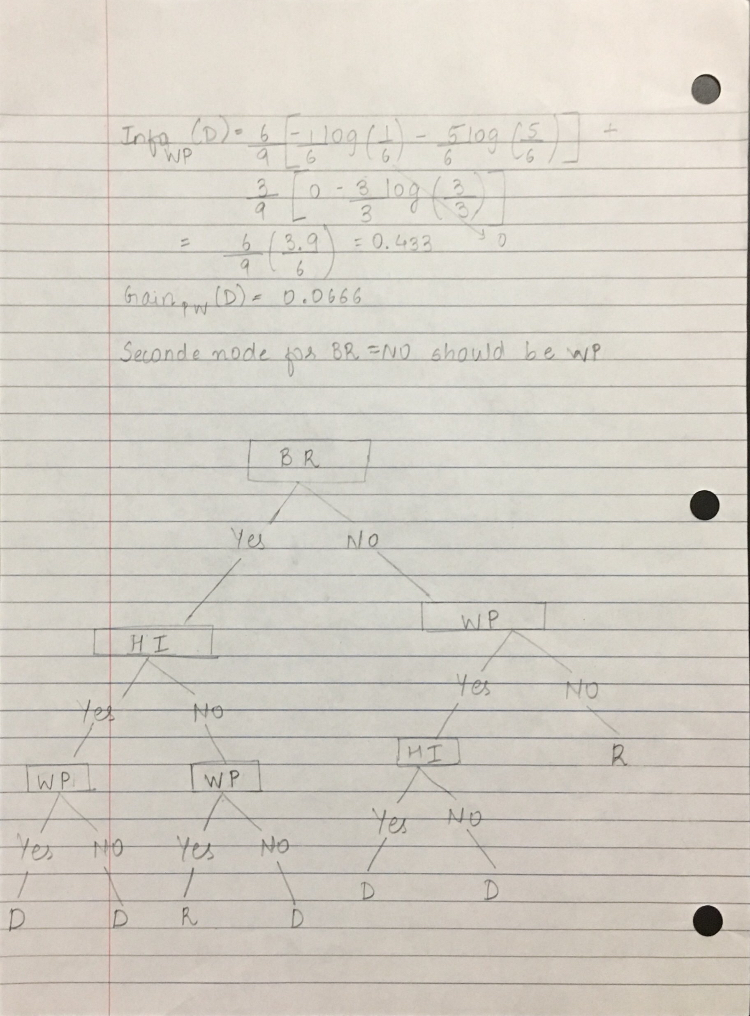 Info_WP (D) = 6/9 [-1/6 log(1/6) - 5/6 log(5/6)] +
3/9 [0 - 3/3 log(3/3)]
= 6/9 (3.9/6) = 0.433 0
Gain_PW (D) = 0.0666
Seconde node for BR = NO should be WP
BR
Yes NO
HI WP
Yes NO Yes NO
WP WP HI R
Yes NO Yes NO Yes NO
D D R D D D